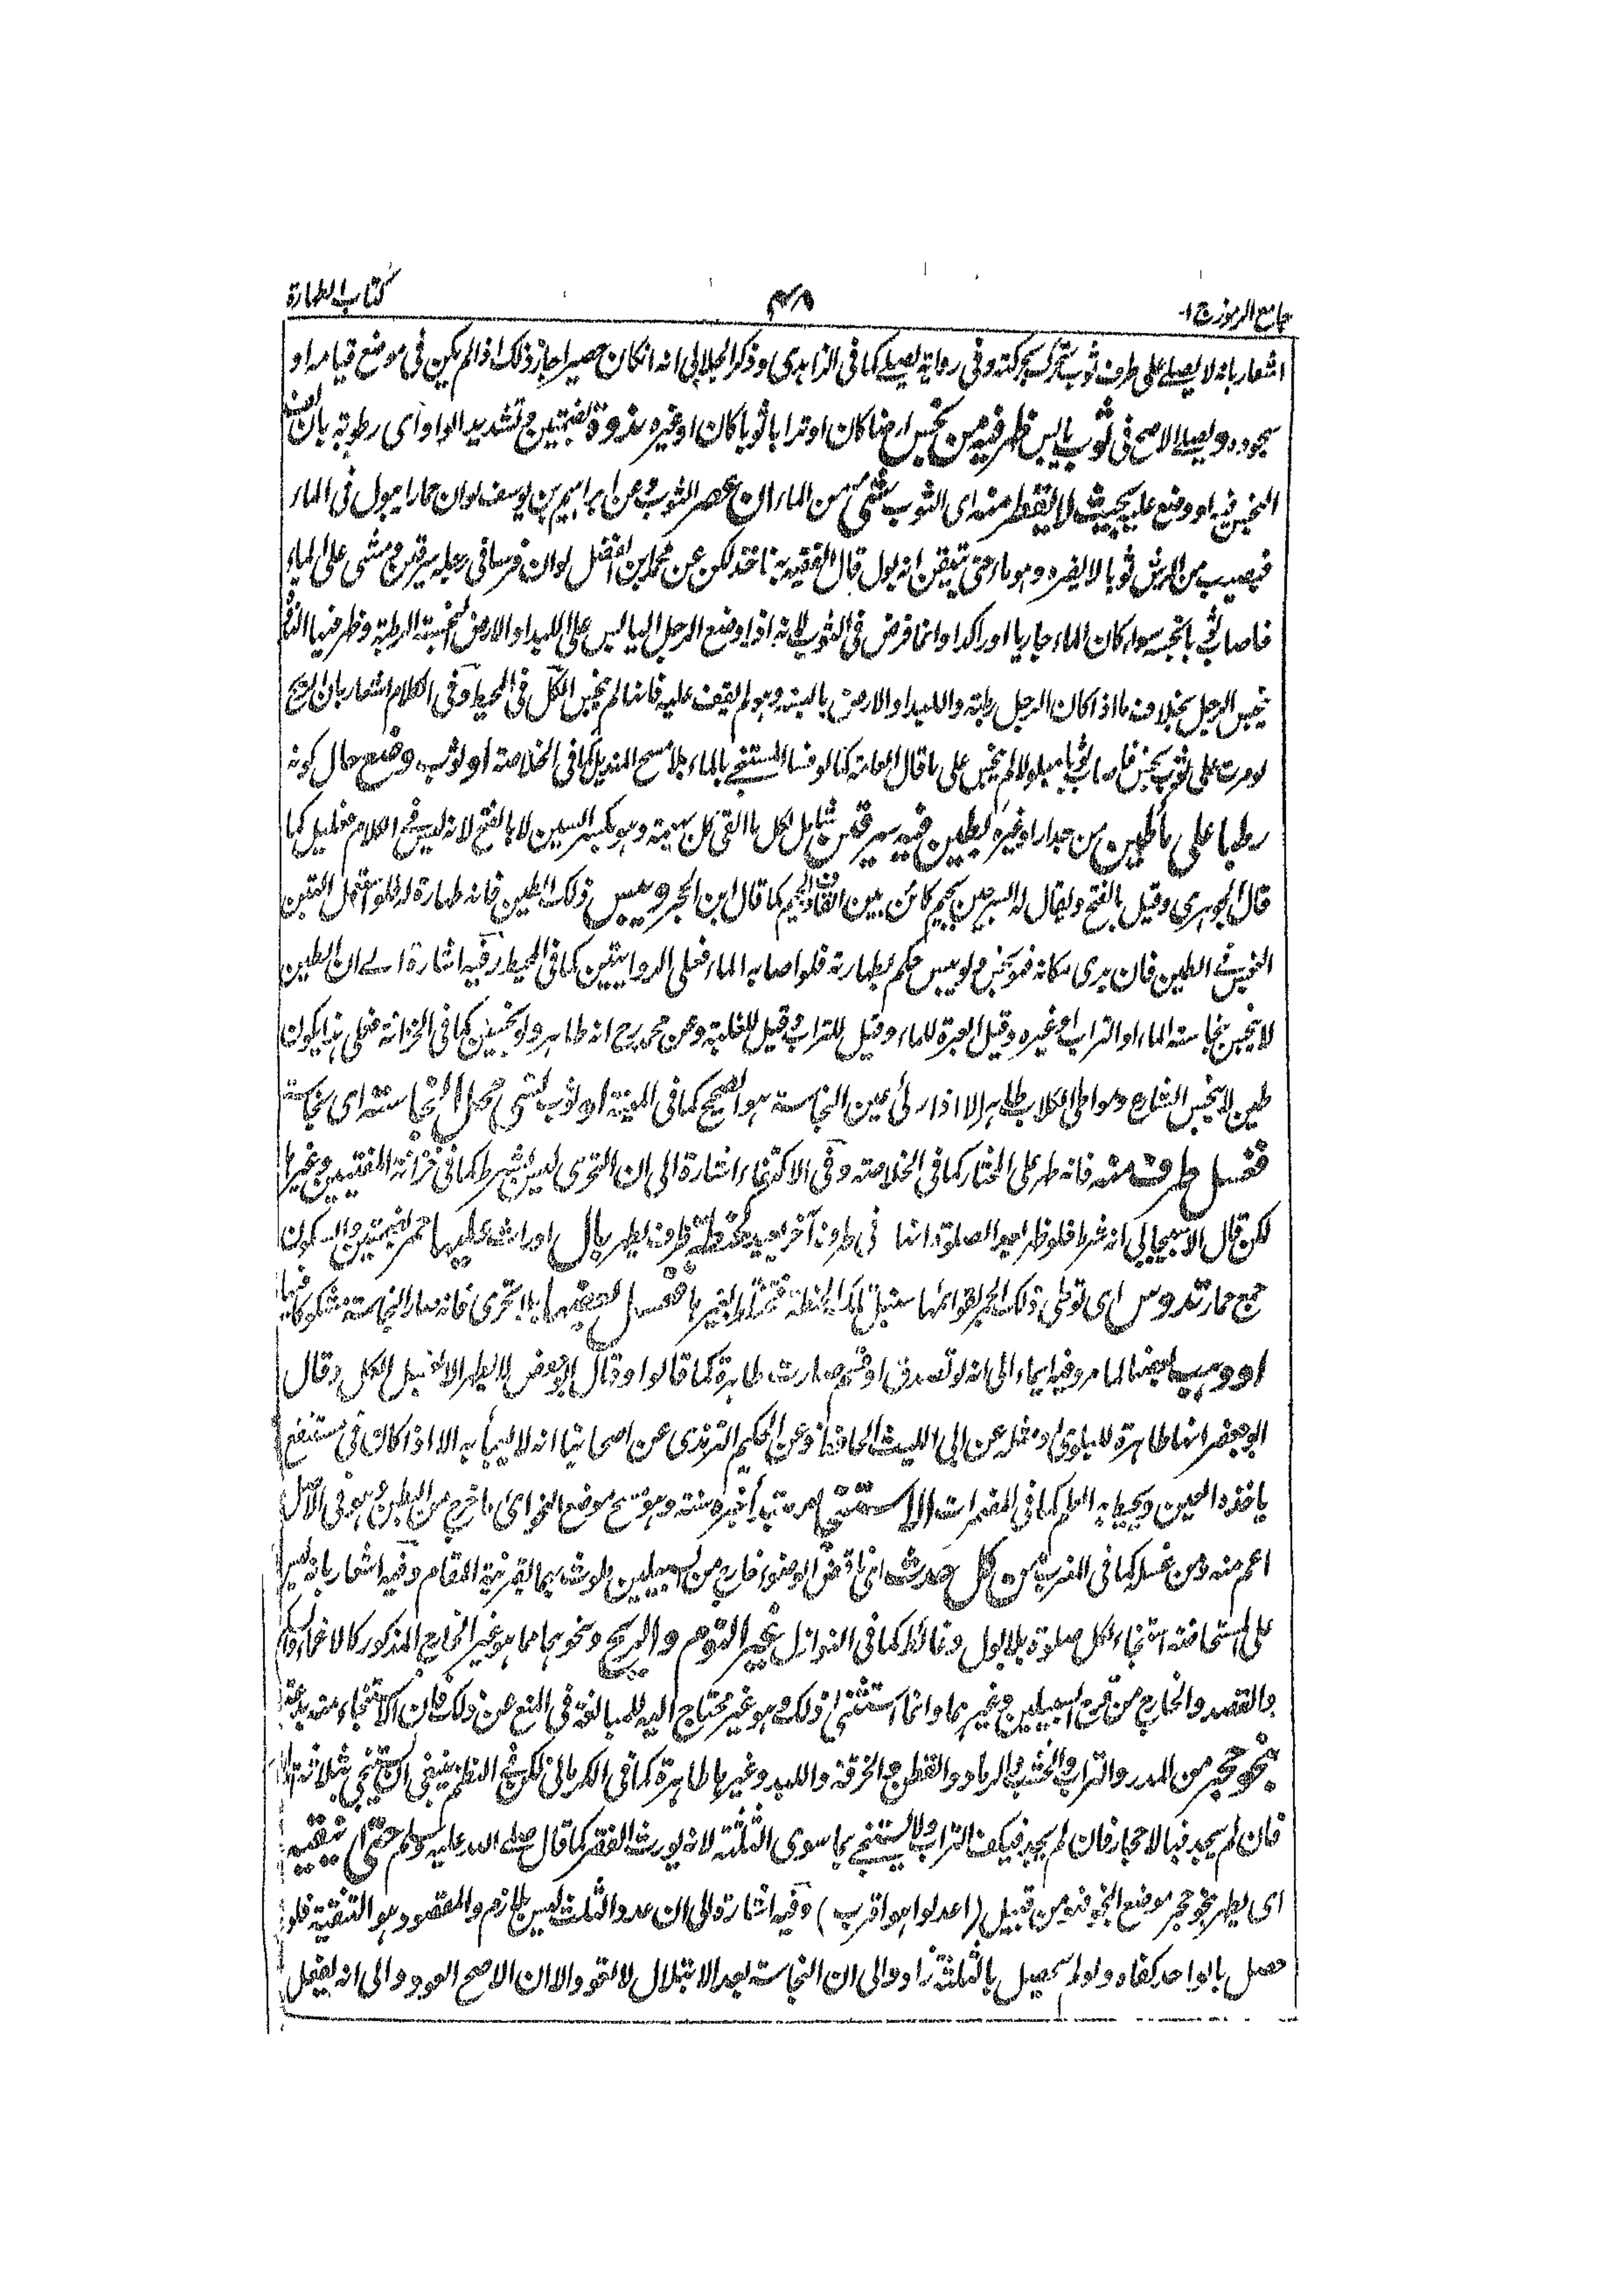 جامع الرموز ج ١- ٤٨ كتاب الطهارة
اشعار بانه لا يصلى على طرف ثوب يتحرك بحركته وفى رواية يصلى كما فى الزاهدى وذكر الجلابى انه ان كان حصيرا جاز ذلك اذا لم يكن فى موضع قيامه او
سجوده ويصلى الاصح فى ثوب يابس ظهر فيه من نجس ارضا كان او ترابا ثوبا كان او غيره ندوة بضمتين وتشديد الواو اى رطوبة بان لف
النجس فيه او وضع عليه بحيث لا يتقطر منه اى الثوب شئ من الماء ان عصر الثوب وعن ابراهيم بن يوسف لو ان حمارا يبول فى الماء
فيصيب من الرش ثوبا لا يضره وهو ماء حتى تيقن انه بول قال الفقيه به ناخذ لكن عن محمد بن الفضل لو ان فرسا فى رجله سرقين ومشى على الماء
فاصاب ثوبا نجسه سواء كان الماء جاريا او راكدا وانما فرض فى الثوب لانه اذا وضع الرجل اليابس على اللبد او الارض النجسة الرطبة وظهر فيها
نجس الرجل بخلاف ما اذا كان الرجل رطبة واللبد او الارض يابسة وهو لم يقف عليه فانها لم يتنجس الكل فى المحيط وفى الكلام اشعار بان الريح
لو مرت على ثوب نجس فاصاب ثوبا مبلولا لم ينجس على ما قال العامة كما لو فسا المستنجى بالماء بلا مسح المنديل كما فى الخلاصة او ثوب وضع حال كونه
رطبا على ما طين من جدار او غيره بطين فيه سرقين شامل لكل ما القى كل بهيمة وهو بكسر السين لا بالفتح لانه ليس فى الكلام فعليل كما
قال الجوهرى وقيل بالفتح ويقال له السرجين بجيم كائن بين القاف والجيم كما قال ابن الحجر ويبس ذلك الطين فانه طهارة له فلو استعمل التبن
النجس فى الطين فان يرى مكانه فهو نجس ولو يبس حكم بطهارته فلو اصابه الماء فعلى الروايتين كما فى المحيط وفيه اشارة الى ان الطين
لا ينجس بنجاسة الماء او التراب وغيره وقيل العبرة للماء وقيل للتراب وقيل للغلبة وعن محمد رح انه طاهر ولو نجسين كما فى الخزانة فعلى هذا يكون
طين لا ينجس الشارع ومواطئ الكلاب طاهر الا اذا رأى عين النجاسة هو الصحيح كما فى المنية او ثوب نسى محل النجاسة اى نجاسة
فغسل طرف منه فانه طهر على المختار كما فى الخلاصة وفى الاكتفاء اشارة الى ان التحرى ليس بشرط كما فى خزانة المفتيين وغيرها
لكن قال الاسبيجابى انه شرط فلو ظهر فى طرف آخر يعيد الصلوة كحنطة يطهر بال او راث عليها حمر بضمتين والسكون
جمع حمار تدوس اى توطى ذلك الحمر بقوائمها سنبل تلك الحنطة فغسل بعضها بلا تحرى فانه صار النجاسة مشكوكا فيها
او وهب بعضها لما مر وفيه ايماء الى انه لو تصدق او قسم صارت طاهرة كما قالوا وقال لا يطهر الا بغسل الكل وقال
ابو جعفر انها طاهرة للبلوى ومثله عن ابى الليث الحافظ وعن الحكيم الترمذى عن اصحابنا انه لا يعبأ به الا اذا كان فى مستنقع
ياخذه العين ويحيط به العلم كما فى المضمرات الاستنجاء مبتدأ خبره سنة وهو مسح موضع النجو اى ما خرج من البطن وهو فى الاصل
اعم منه ومن غسله كما فى المغرب من كل حدث اى ناقض الوضوء خارج من السبيلين بقرينة المقام وفيه اشعار بانه ليس
على المستحاضة استنجاء لكل صلوة بلا بول وغائط كما فى النوازل غير النوم والريح ونحوهما مما هو غير الخارج المذكور كالاغماء
والفصد والخارج من قرح السبيلين وغيرهما وانما استثنى ذلك وهو غير محتاج اليه للمبالغة فى المنع عن ذلك فان الاستنجاء منه بدعة
بنحو حجر من المدر والتراب والخشب والرماد والقطن والخرقة واللبد وغيرها طاهرة كما فى الكرمانى لكن فى النظم ينبغى ان يستنجى بثلاثة
فان لم يجد فبالاحجار فان لم يجد فبكف التراب ولا يستنجى بما سوى الثلثة لانه يورث الفقر كما قال صلى الله عليه وسلم حتى ينقيه
اى يطهر بنحو حجر موضع النجو فهو من قبيل (اعدلوا هو اقرب) وفيه اشارة الى ان عدد الثلث ليس بلازم والمقصود هو التنقية فلو
حصل بالواحد كفاه ولو لم يحصل بالثلثة زاد والى ان النجاسة بعد الابتلال لا تعود الا ان الاصح العود والى انه يفعل